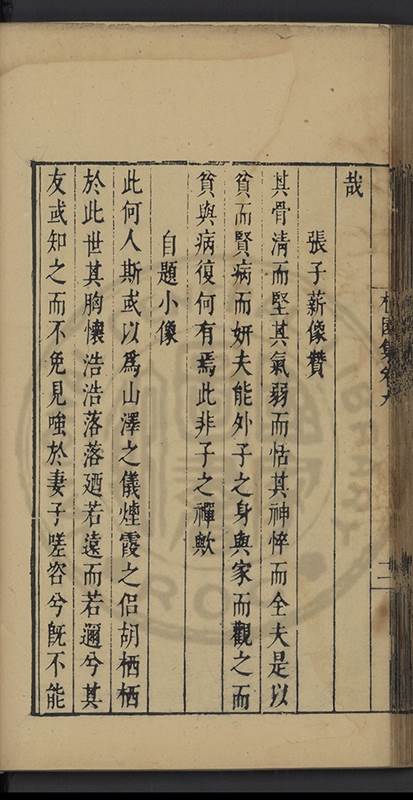 哉
張子薪像贊
其骨清而堅其氣弱而恬其神悴而全夫是以
貧而賢病而妍夫能外子之身與家而觀之而
貧與病復何有焉此非子之禪歟
自題小像
此何人斯或以為山澤之儀煙霞之侶胡栖栖
於此世其胸懷浩浩落落廼若遠而若邇兮其
友或知之而不免見嗤於妻子嗟容兮既不能